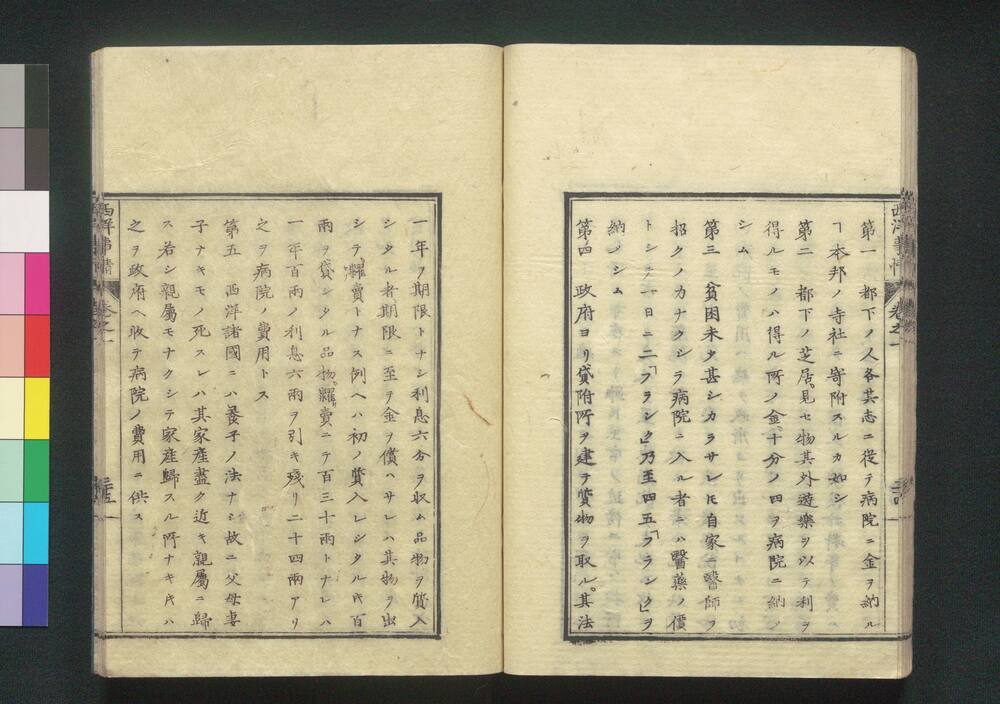 第一 都下ノ人各其志ニ從テ病院ニ金ヲ納ル
「本邦ノ寺社ニ寄附スルカ如シ
第二 都下ノ芝居。見セ物其外遊樂ヲ以テ利ヲ
得ルモノハ得ル所ノ金十分ノ四ヲ病院ニ納メ
シム
第三 貧困未タ甚シカラサレ𪜈自家ニ醫師ヲ
招クノカナクシテ病院ニ入ル者ニハ醫藥ノ價
トシテ一日ニ二「フランク」乃至四五「フランク」ヲ
納メシム
第四 政府ヨリ貸附所ヲ建テ質物ヲ取ル。其法
西洋事情 卷之一
二十四
一年ヲ期限トナシ利息六分ヲ収ム品物ヲ質入
シタル者期限ニ至テ金ヲ償ハサレハ其物ヲ出
シテ糶賣トナス例ヘハ初メ質入レシタル時百
兩ヲ貸シタル品物。糶賣ニテ百三十兩トナレハ
一年百兩ノ利息六兩ヲ引キ殘リ二十四兩アリ
之ヲ病院ノ費用トス
第五 西洋諸國ニハ養子ノ法ナシ故ニ父母妻
子ナキモノ死スレハ其家産盡ク近キ親屬ニ歸
ス若シ親屬モナクシテ家産歸スル所ナキ𪜈ハ
之ヲ政府ヘ收テ病院ノ費用ニ供ス
西洋事情 卷之一
二十五